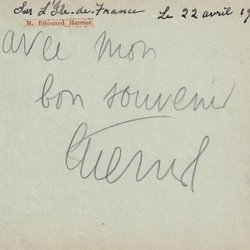 Sur l'Ile-de-France Le 22 avril 19
M. Edouard Herriot
avec mon
bon souvenir
Herriot